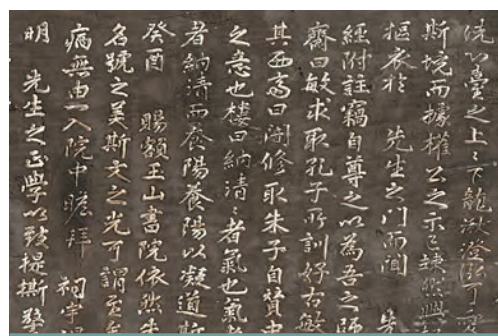 洗心臺之上〻下龍湫澄泓可
斯境而據權公之示〻竦然興
摳衣於 先生之門而聞 先
經附註竊自尊之以為吾之師
齋曰敏求取孔子所訓好古敏
其西齋曰闇修取朱子自贊中
之意也樓曰納清〻者氣也氣
者納清而養陽養陽以凝道斯
癸酉 賜額玉山書院依然朱
名號之美斯文之光可謂至
病無由一入院中瞻拜 祠宇
明 先生之正學以致提撕警